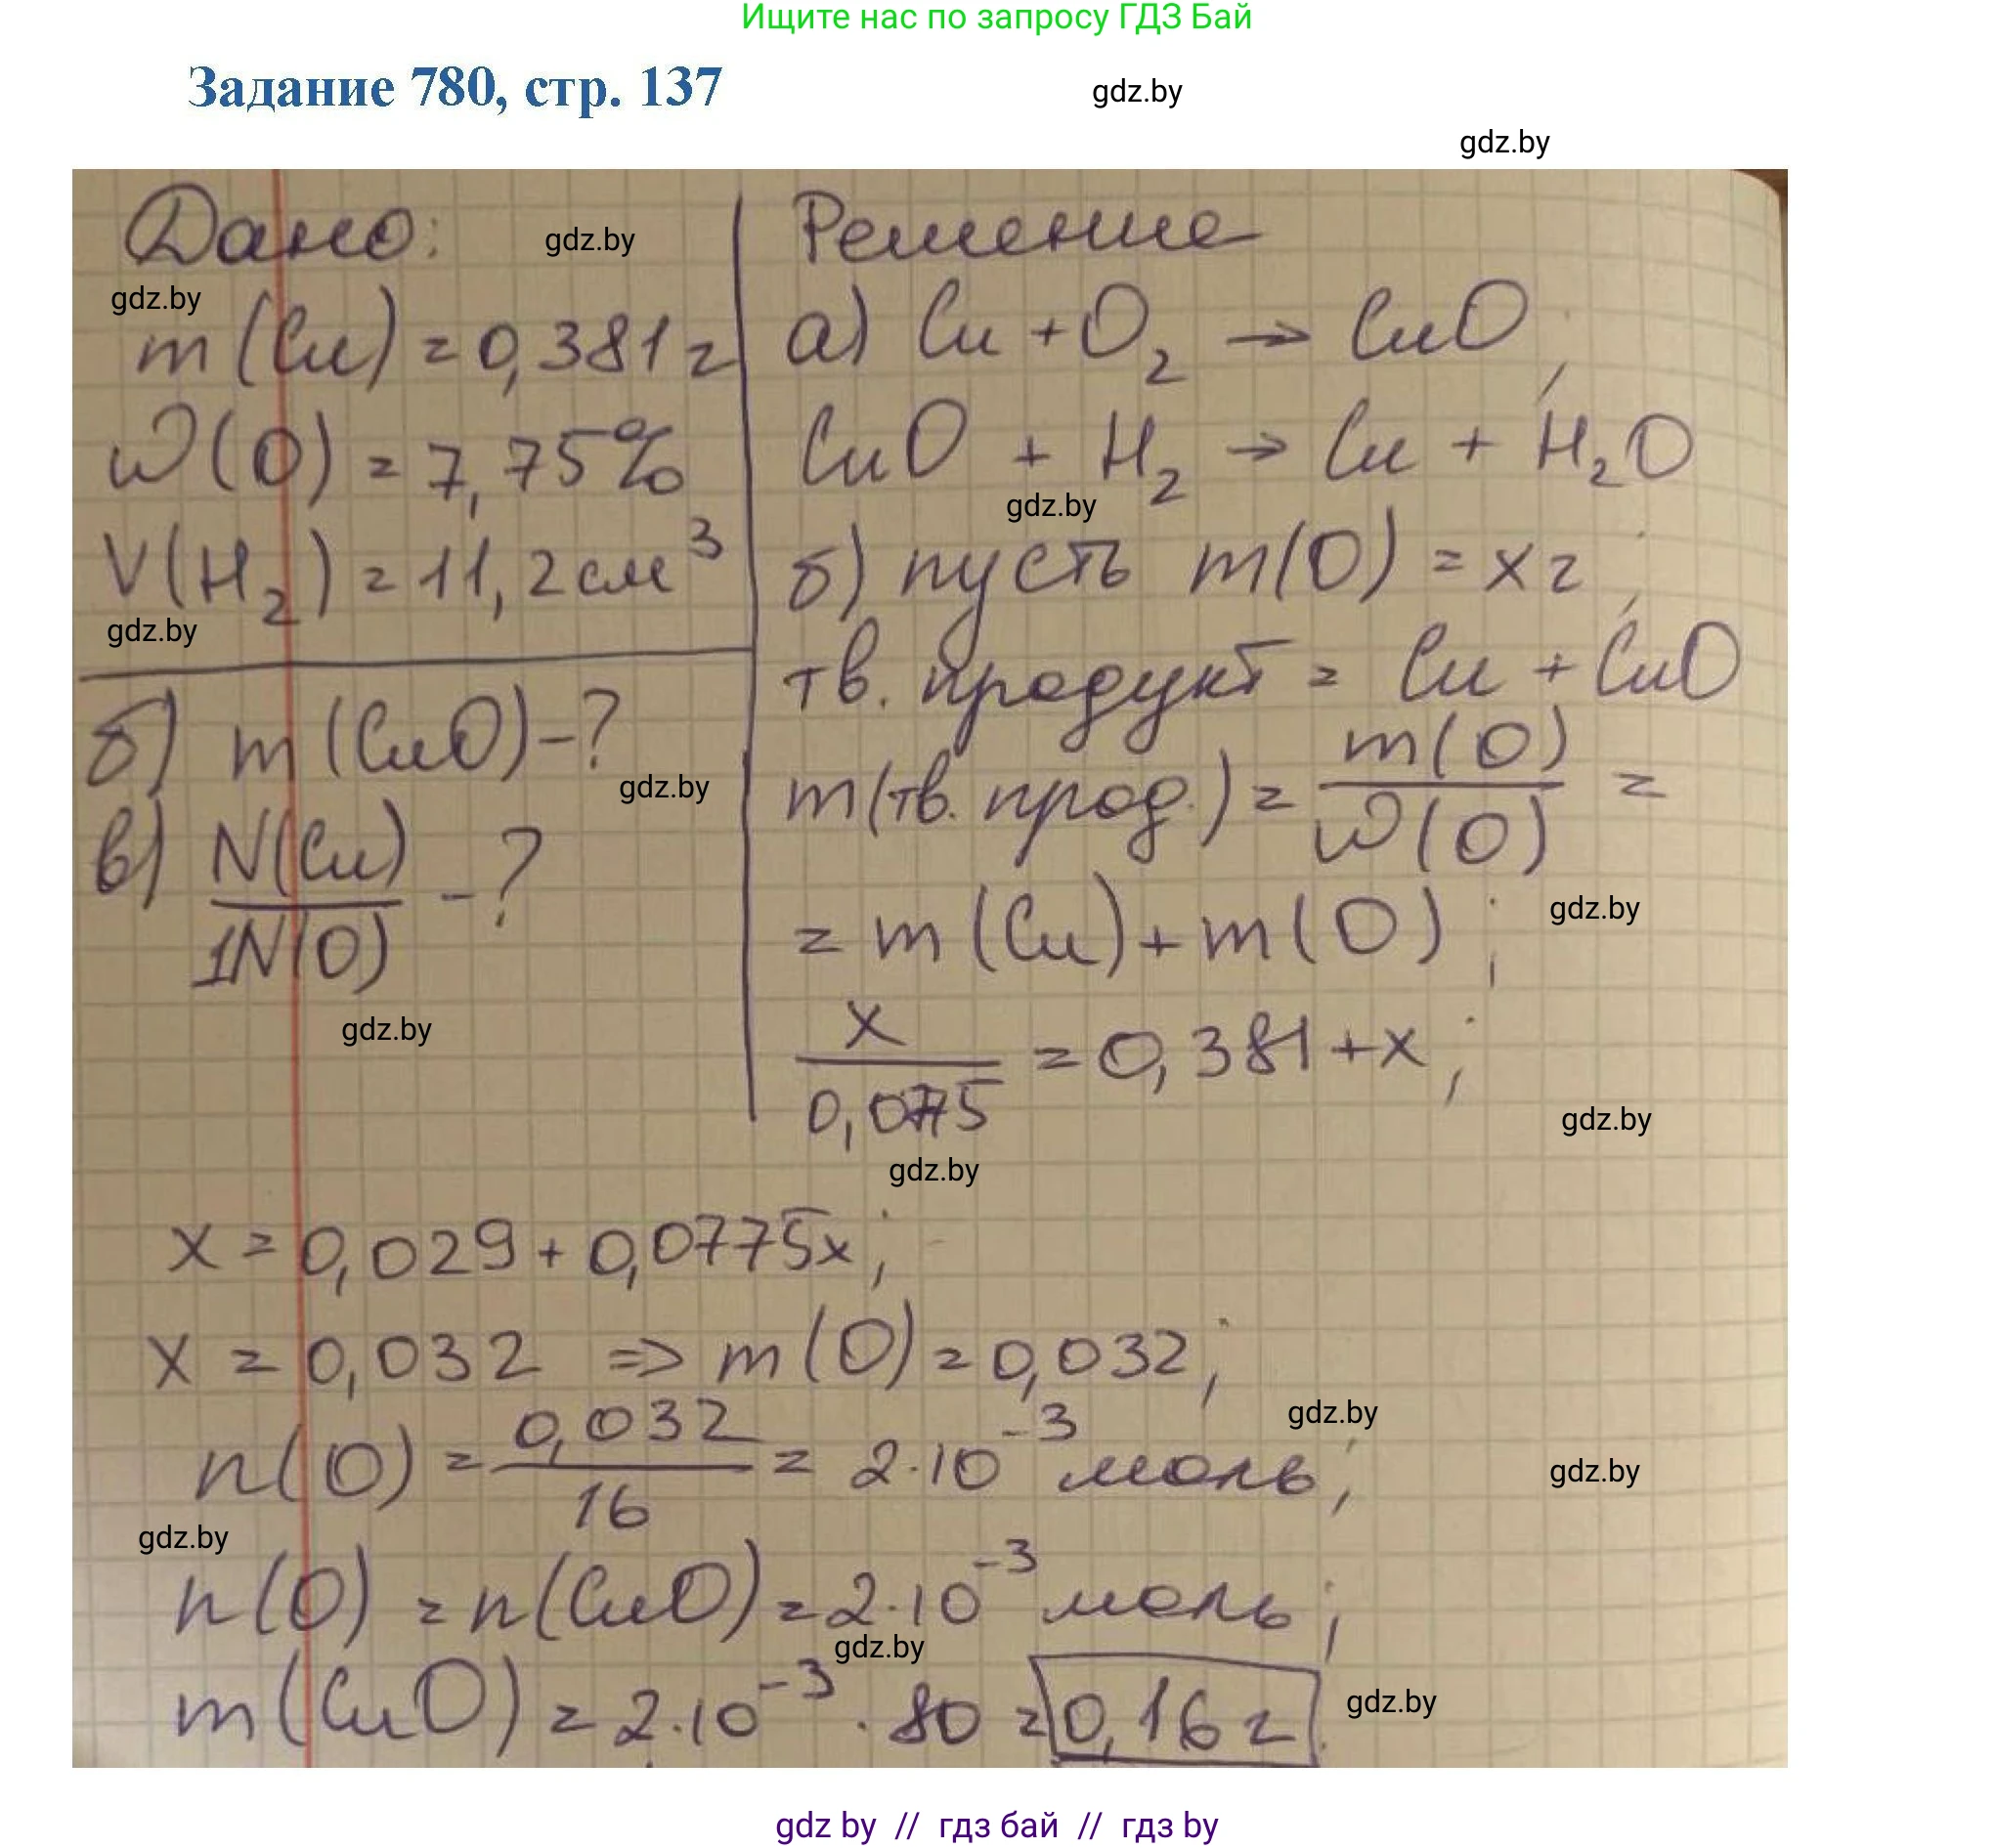 Ищите нас по запросу ГДЗ Бай
Задание 780, стр. 137
gdz.by
gdz.by
Дано:
gdz.by
gdz.by
m(Cu) = 0,381 г
ω(O) = 7,75%
V(H₂) = 11,2 см³
gdz.by
б) m(CuO) - ?
gdz.by
в) N(Cu)/1N(O) - ?
gdz.by
Решение
а) Cu + O₂ → CuO;
CuO + H₂ → Cu + H₂O
gdz.by
б) пусть m(O) = x г;
тв. продукт = Cu + CuO
m(тв. прод.) = m(O)/ω(O) =
gdz.by
= m(Cu) + m(O);
x/0,0775 = 0,381 + x;
gdz.by
gdz.by
x = 0,029 + 0,0775x;
x = 0,032 => m(O) = 0,032;
gdz.by
n(O) = 0,032/16 = 2·10⁻³ моль;
gdz.by
gdz.by
n(O) = n(CuO) = 2·10⁻³ моль;
gdz.by
m(CuO) = 2·10⁻³ · 80 = 0,16 г.
gdz.by
gdz by // гдз бай // гдз by